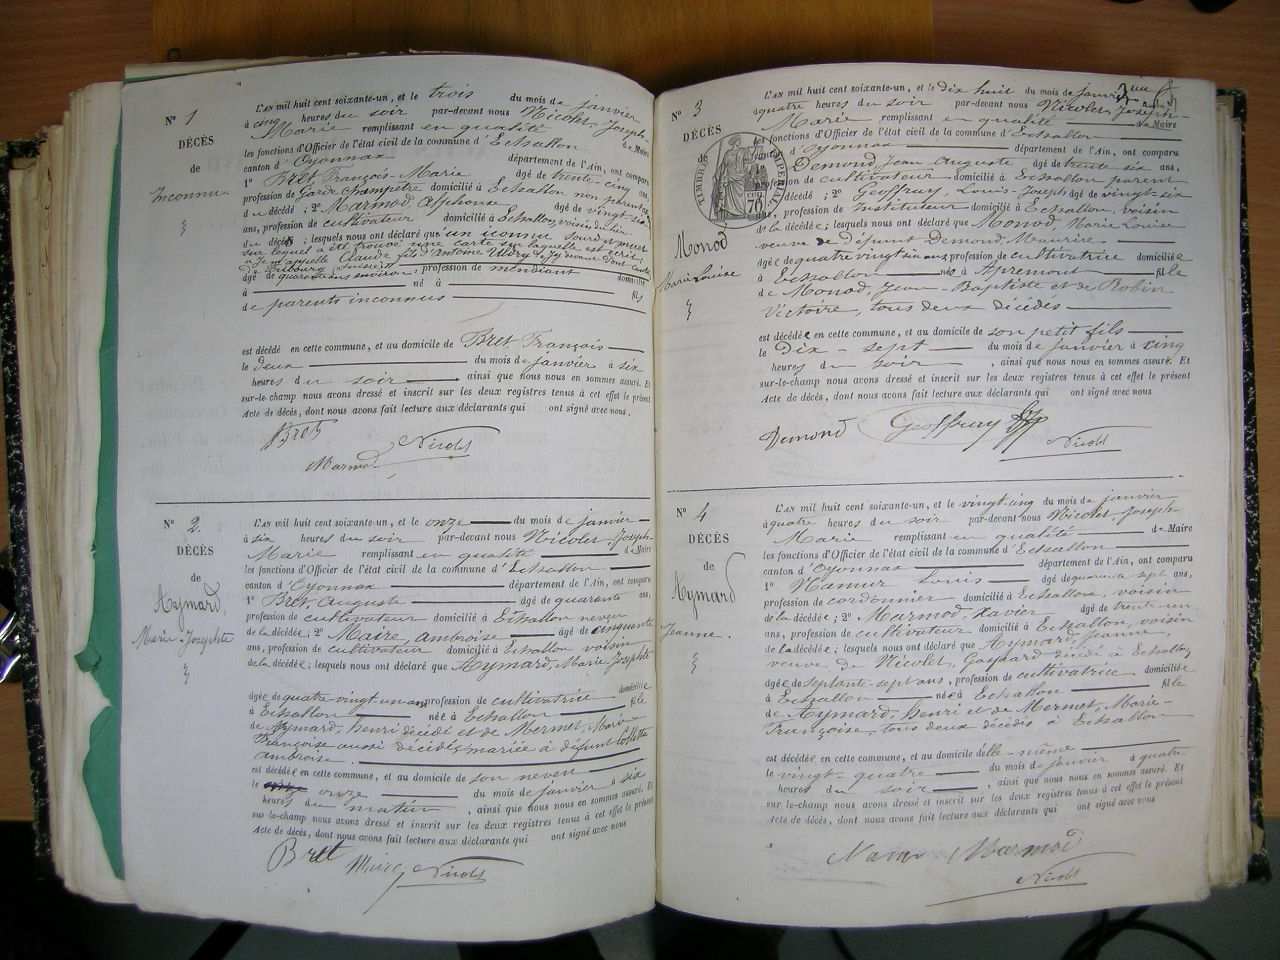 N° 1
DÉCÈS
de
Inconnu
L'AN mil huit cent soixante-un, et le trois du mois de janvier
à cinq heures du soir par-devant nous Nicolet, Joseph-
Marie remplissant en qualité de Maire
les fonctions d'Officier de l'état civil de la commune d'Echallon
canton d'Oyonnax département de l'Ain, ont comparu
1° Bret François-Marie âgé de trente-cinq ans,
profession de Garde champêtre domicilié à Echallon non parent
du décédé ; 2° Marmod Alphonse âgé de vingt-six
ans, profession de cultivateur domicilié à Echallon, voisin
du décédé ; lesquels nous ont déclaré qu'un iconnu sourd et muet
sur lequel a été trouvé une carte sur laquelle est écrit
je m'appelle Claude fils d'Antoine
âgé de quarante ans environ, profession de mendiant domicilié
à né à fils
de parents inconnus
est décédé en cette commune, et au domicile de Bret François
le deux du mois de janvier à six
heures du soir ainsi que nous nous en sommes assuré. Et
sur-le-champ nous avons dressé et inscrit sur les deux registres tenus à cet effet le présent
Acte de décès, dont nous avons fait lecture aux déclarants qui ont signé avec nous.
Bret
Marmod Nicolet
N° 2.
DÉCÈS
de
Aymard,
Marie-Josephte
L'AN mil huit cent soixante-un, et le onze du mois de janvier
à six heures du soir par-devant nous Nicolet, Joseph-
Marie remplissant en qualité de Maire
les fonctions d'Officier de l'état civil de la commune d'Echallon
canton d'Oyonnax département de l'Ain, ont comparu
1° Bret, Auguste âgé de quarante ans,
profession de cultivateur domicilié à Echallon neveu
de la décédée ; 2° Maire, ambroise âgé de cinquante
ans, profession de cultivateur domicilié à Echallon voisin
de la décédée ; lesquels nous ont déclaré que Aymard, Marie Josephte
âgée de quatre vingt-un ans, profession de cultivatrice domiciliée
à Echallon née à Echallon fille
de Aymard, henri décédé et de Mermet, Marie-
Françoise aussi décédée, mariée à défunt
ambroise.
est décédée en cette commune, et au domicile de son neveu
le onze du mois de janvier à six
heures du matin, ainsi que nous nous en sommes assuré. Et
sur-le-champ nous avons dressé et inscrit sur les deux registres tenus à cet effet le présent
Acte de décès, dont nous avons fait lecture aux déclarants qui ont signé avec nous
Bret Maire Nicolet
N° 3
DÉCÈS
de
Monod
Marie Louise
TIMBRE IMPÉRIAL
70
L'AN mil huit cent soixante-un, et le dix huit du mois de janvier
à quatre heures du soir par-devant nous Nicolet, Joseph-
Marie remplissant en qualité de Maire
les fonctions d'Officier de l'état civil de la commune d'Echallon
canton d'Oyonnax département de l'Ain, ont comparu
1° Demond, Jean Auguste âgé de trente-six ans,
profession de cultivateur domicilié à Echallon parent
décédée ; 2° Geoffray, Louis-Joseph âgé de vingt-six
ans, profession de Instituteur domicilié à Echallon, voisin
de la décédée ; lesquels nous ont déclaré que Monod, Marie Louise
veuve de défunt Demond, Maurice
âgée de quatre vingt six ans, profession de cultivatrice domiciliée
à Echallon née à Apremont fille
de Monod, Jean-Baptiste et de Robin
Victoire, tous deux décédés
est décédée en cette commune, et au domicile de son petit fils
le Dix-sept du mois de janvier à cinq
heures du soir, ainsi que nous nous en sommes assuré. Et
sur-le-champ nous avons dressé et inscrit sur les deux registres tenus à cet effet le présent
Acte de décès, dont nous avons fait lecture aux déclarants qui ont signé avec nous
Demond Geoffray
Nicolet
N° 4
DÉCÈS
de
Aymard
Jeanne.
L'AN mil huit cent soixante-un, et le vingt-cinq du mois de janvier
à quatre heures du soir par-devant nous Nicolet, Joseph
Marie remplissant en qualité de Maire
les fonctions d'Officier de l'état civil de la commune d'Echallon
canton d'Oyonnax département de l'Ain, ont comparu
1° Namur Louis âgé de quarante sept ans,
profession de cordonnier domicilié à Echallon, voisin
de la décédée ; 2° Marmod Xavier âgé de trente-un
ans, profession de cultivateur domicilié à Echallon, voisin
de la décédée ; lesquels nous ont déclaré que Aymard, Jeanne,
veuve de Nicolet, Gaspard décédé à Echallon,
âgée de septante-sept ans, profession de cultivatrice domiciliée
à Echallon née à Echallon fille
de Aymard, henri et de Mermet, Marie-
Françoise, tous deux décédés à Echallon
est décédée en cette commune, et au domicile d'elle-même
le vingt-quatre du mois de janvier à quatre
heures du soir, ainsi que nous nous en sommes assuré. Et
sur-le-champ nous avons dressé et inscrit sur les deux registres tenus à cet effet le présent
Acte de décès, dont nous avons fait lecture aux déclarants qui ont signé avec nous
Namur Marmod
Nicolet